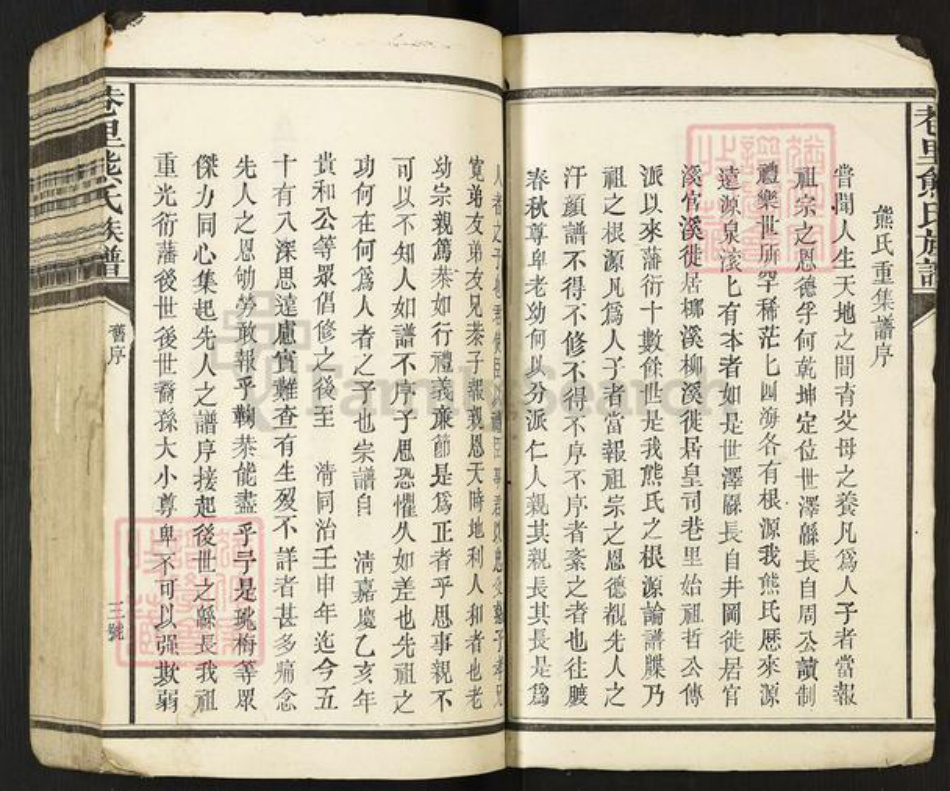 巷里熊氏族譜
熊氏重集譜序
嘗聞人生天地之間育父母之養凡爲人子者當報
祖宗之恩德孚何乾坤定位世澤緜長自周公讀制
禮樂世所罕稀茫匕四海各有根源我熊氏歷來源
遠源泉滾匕有本者如是世澤緜長自井岡徙居官
溪官溪徙居槨溪柳溪徙居皇司巷里始祖哲公傳
派以來藩衍十數餘世是我熊氏之根源論譜牒乃
祖之根源凡爲人子者當報祖宗之恩德覩先人之
汗顏譜不得不修不得不序不序者紊之者也往
春秋尊卑老幼何以分派仁人親其親長其長是爲
人者之子
寬弟友弟友兄恭子報親恩天時地利人和者也老
幼宗親篤恭如行禮義亷節是爲正者乎思事親不
可以不知人如譜不序予思恐懼久如差也先祖之
功何在何爲人者之子也宗譜自 淸嘉慶乙亥年
貴和公等眾倡修之後至 淸同治壬申年迄今五
十有八深思遠慮實難查有生歿不詳者甚多痛念
先人之恩劬勞敢報乎鞠恭能盡乎于是珧梅等眾
傑力同心集起先人之譜序接起後世之緜長我祖
重光衍藩後世後世裔孫大小尊卑不可以强欺弱
巷里熊氏族譜
舊序
三號
FamilySearch